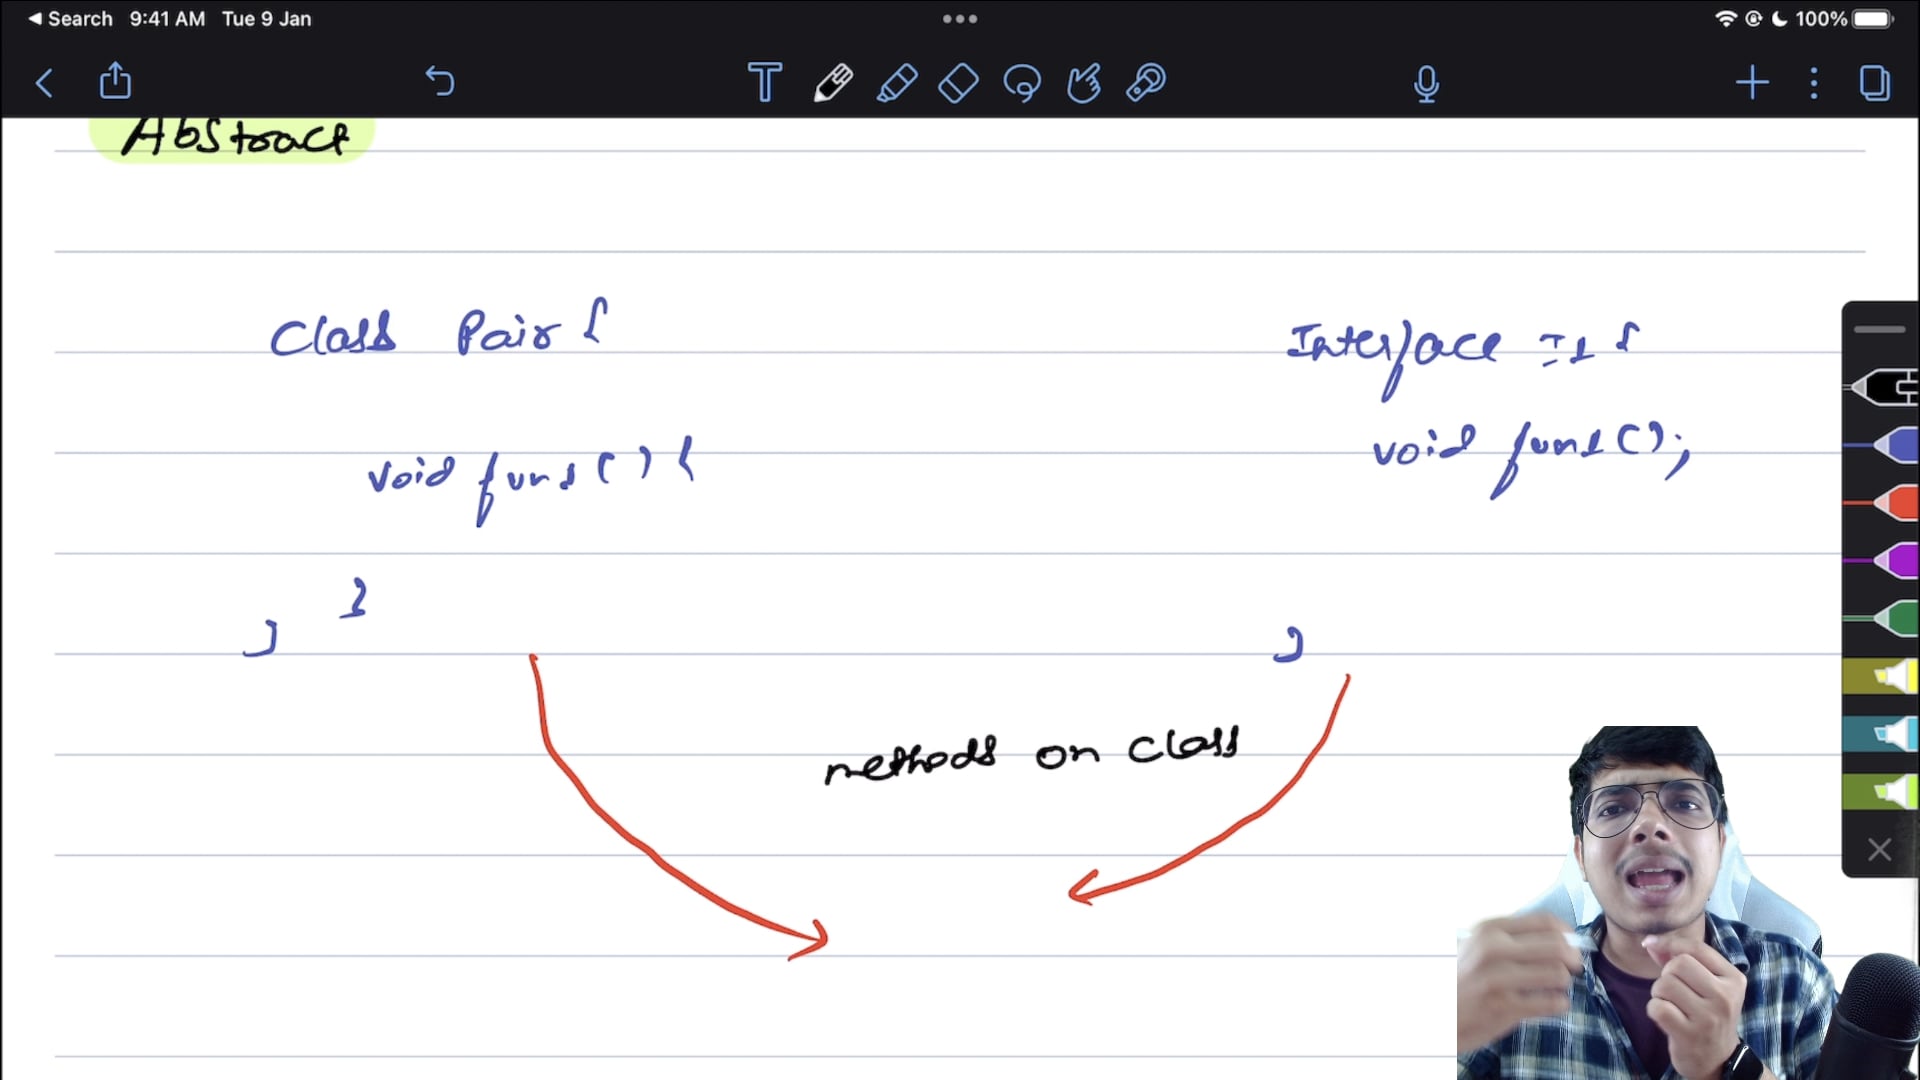 Search 9:41 AM Tue 9 Jan
100%
Abstract
Class Pair {
void fun1() {
}
}
Interface I1 {
void fun1();
}
methods on class